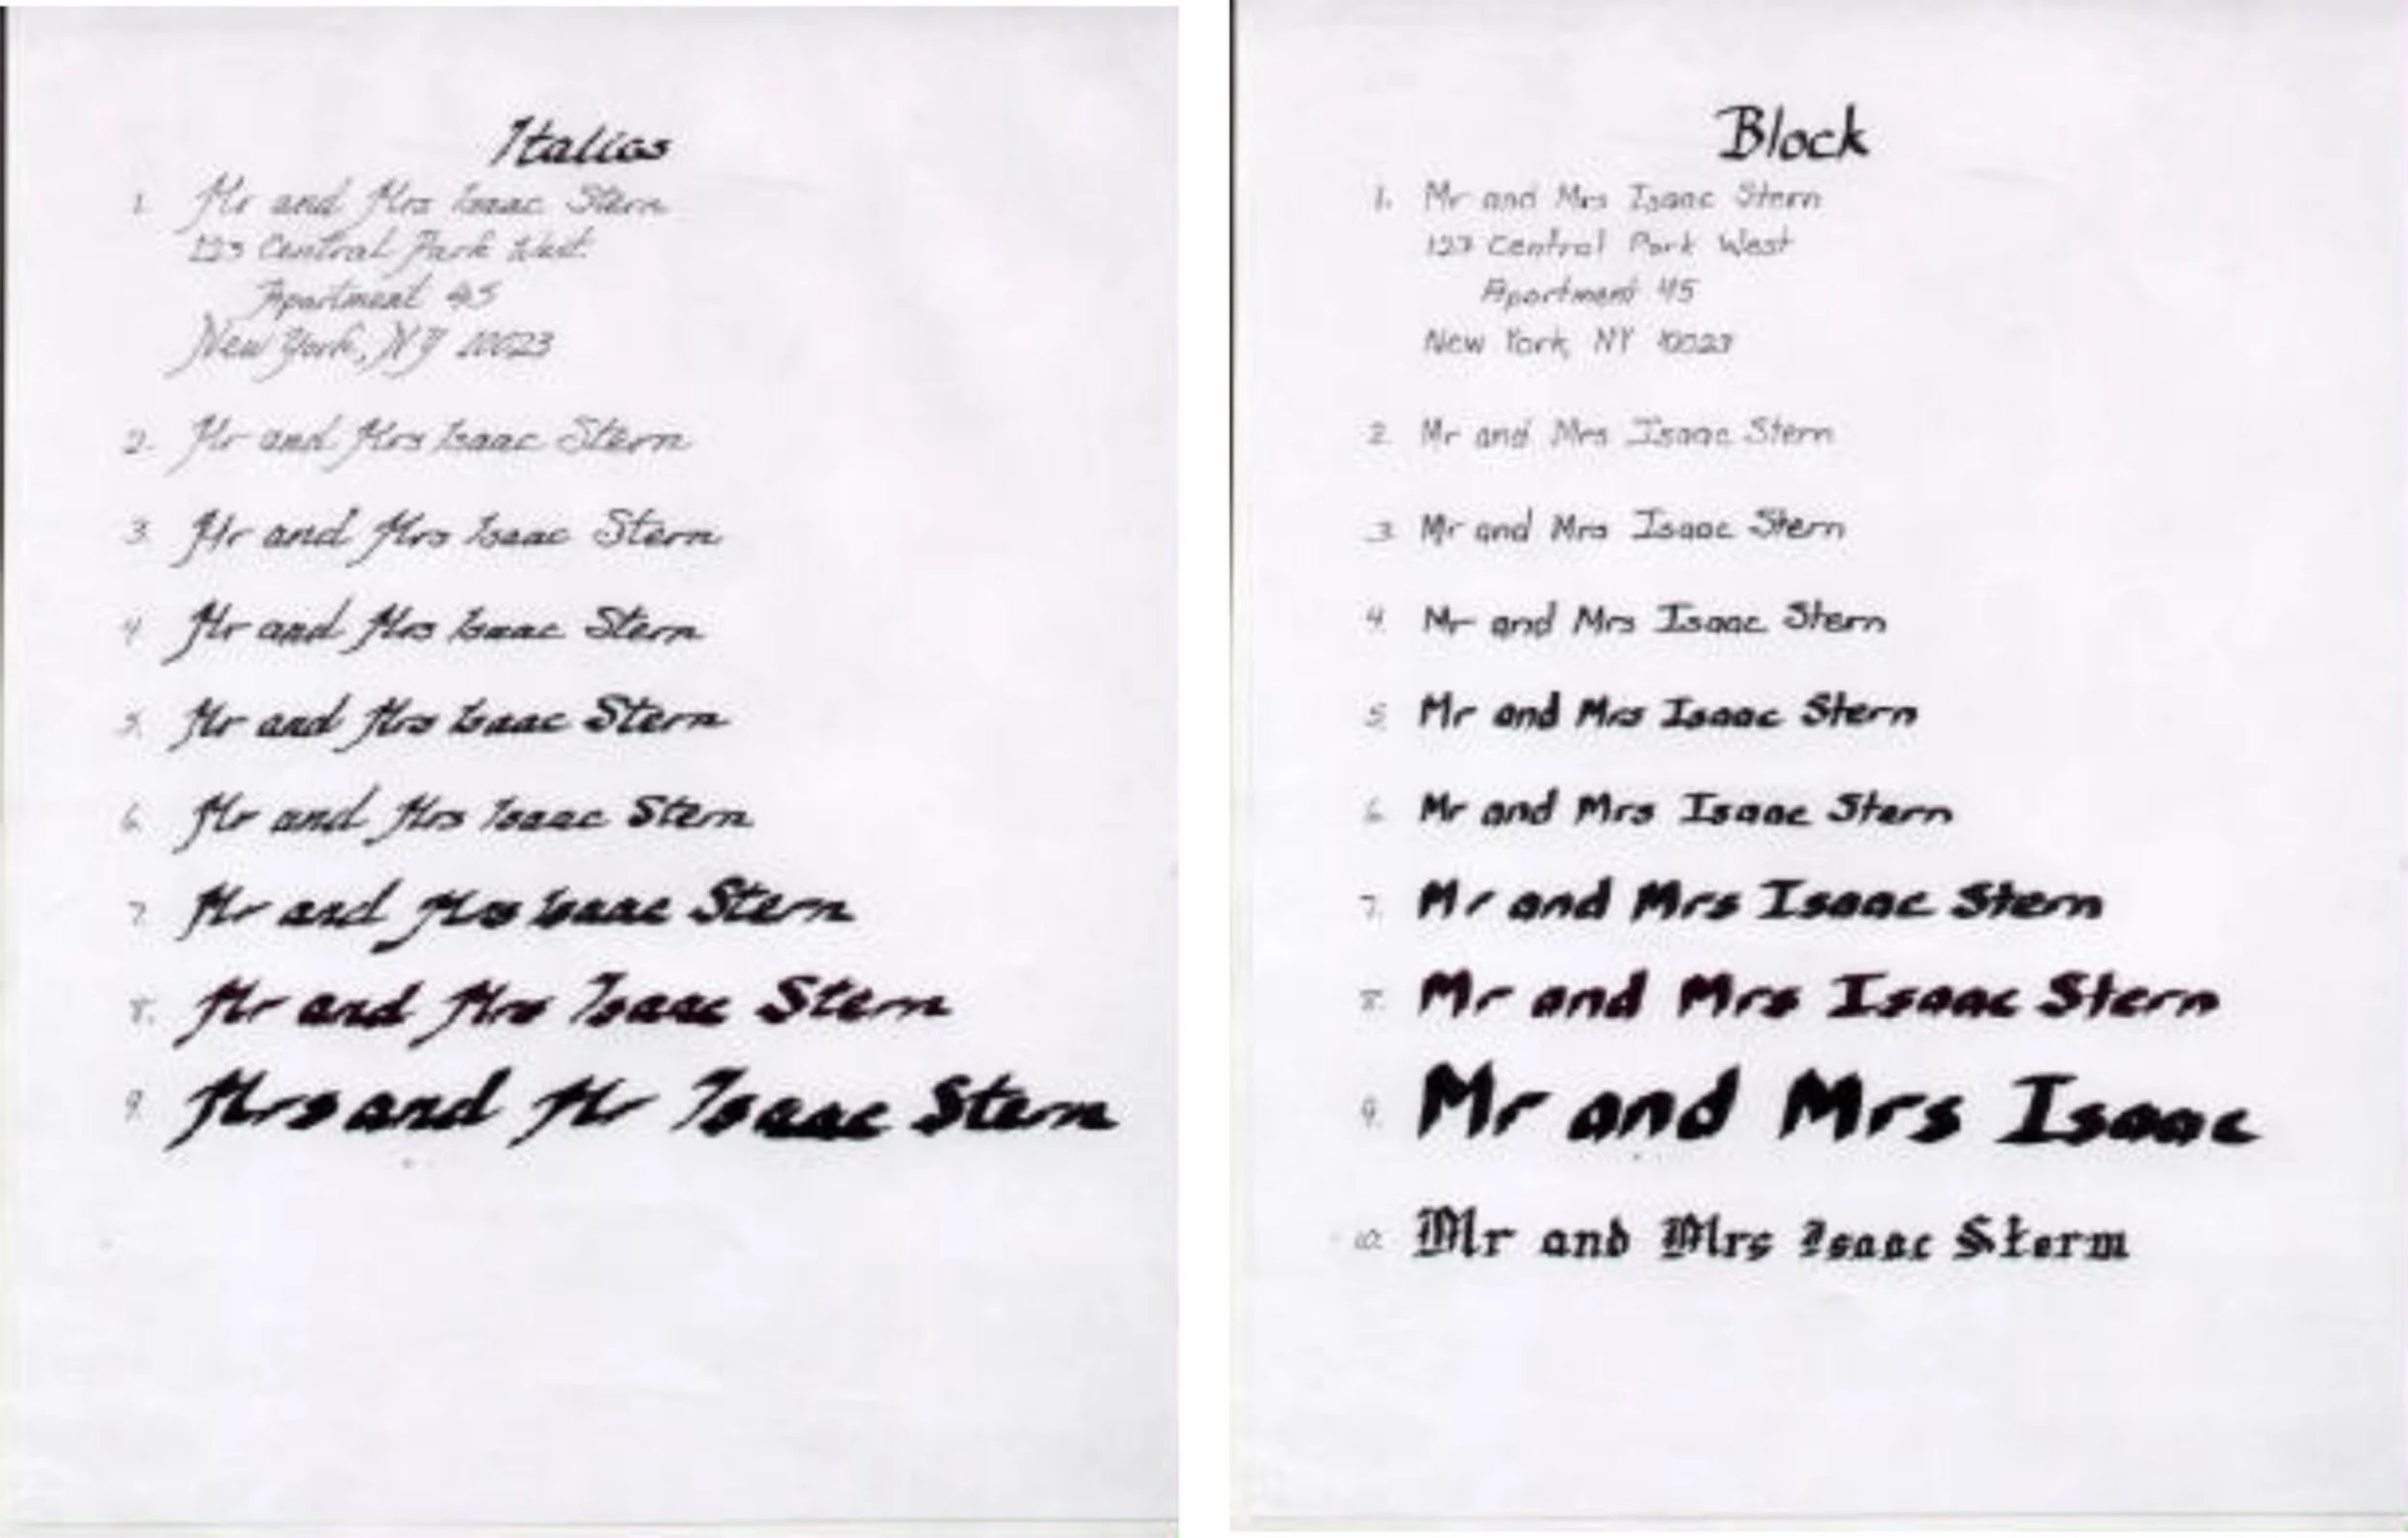 Italics
1. Mr and Mrs Isaac Stern
123 Central Park West
Apartment 45
New York, NY 10023
2. Mr and Mrs Isaac Stern
3. Mr and Mrs Isaac Stern
4. Mr and Mrs Isaac Stern
5. Mr and Mrs Isaac Stern
6. Mr and Mrs Isaac Stern
7. Mr and Mrs Isaac Stern
8. Mr and Mrs Isaac Stern
9. Mrs and Mr Isaac Stern
Block
1. Mr and Mrs Isaac Stern
123 Central Park West
Apartment 45
New York, NY 10023
2. Mr and Mrs Isaac Stern
3. Mr and Mrs Isaac Stern
4. Mr and Mrs Isaac Stern
5. Mr and Mrs Isaac Stern
6. Mr and Mrs Isaac Stern
7. Mr and Mrs Isaac Stern
8. Mr and Mrs Isaac Stern
9. Mr and Mrs Isaac
10. Mr and Mrs Isaac Sterm